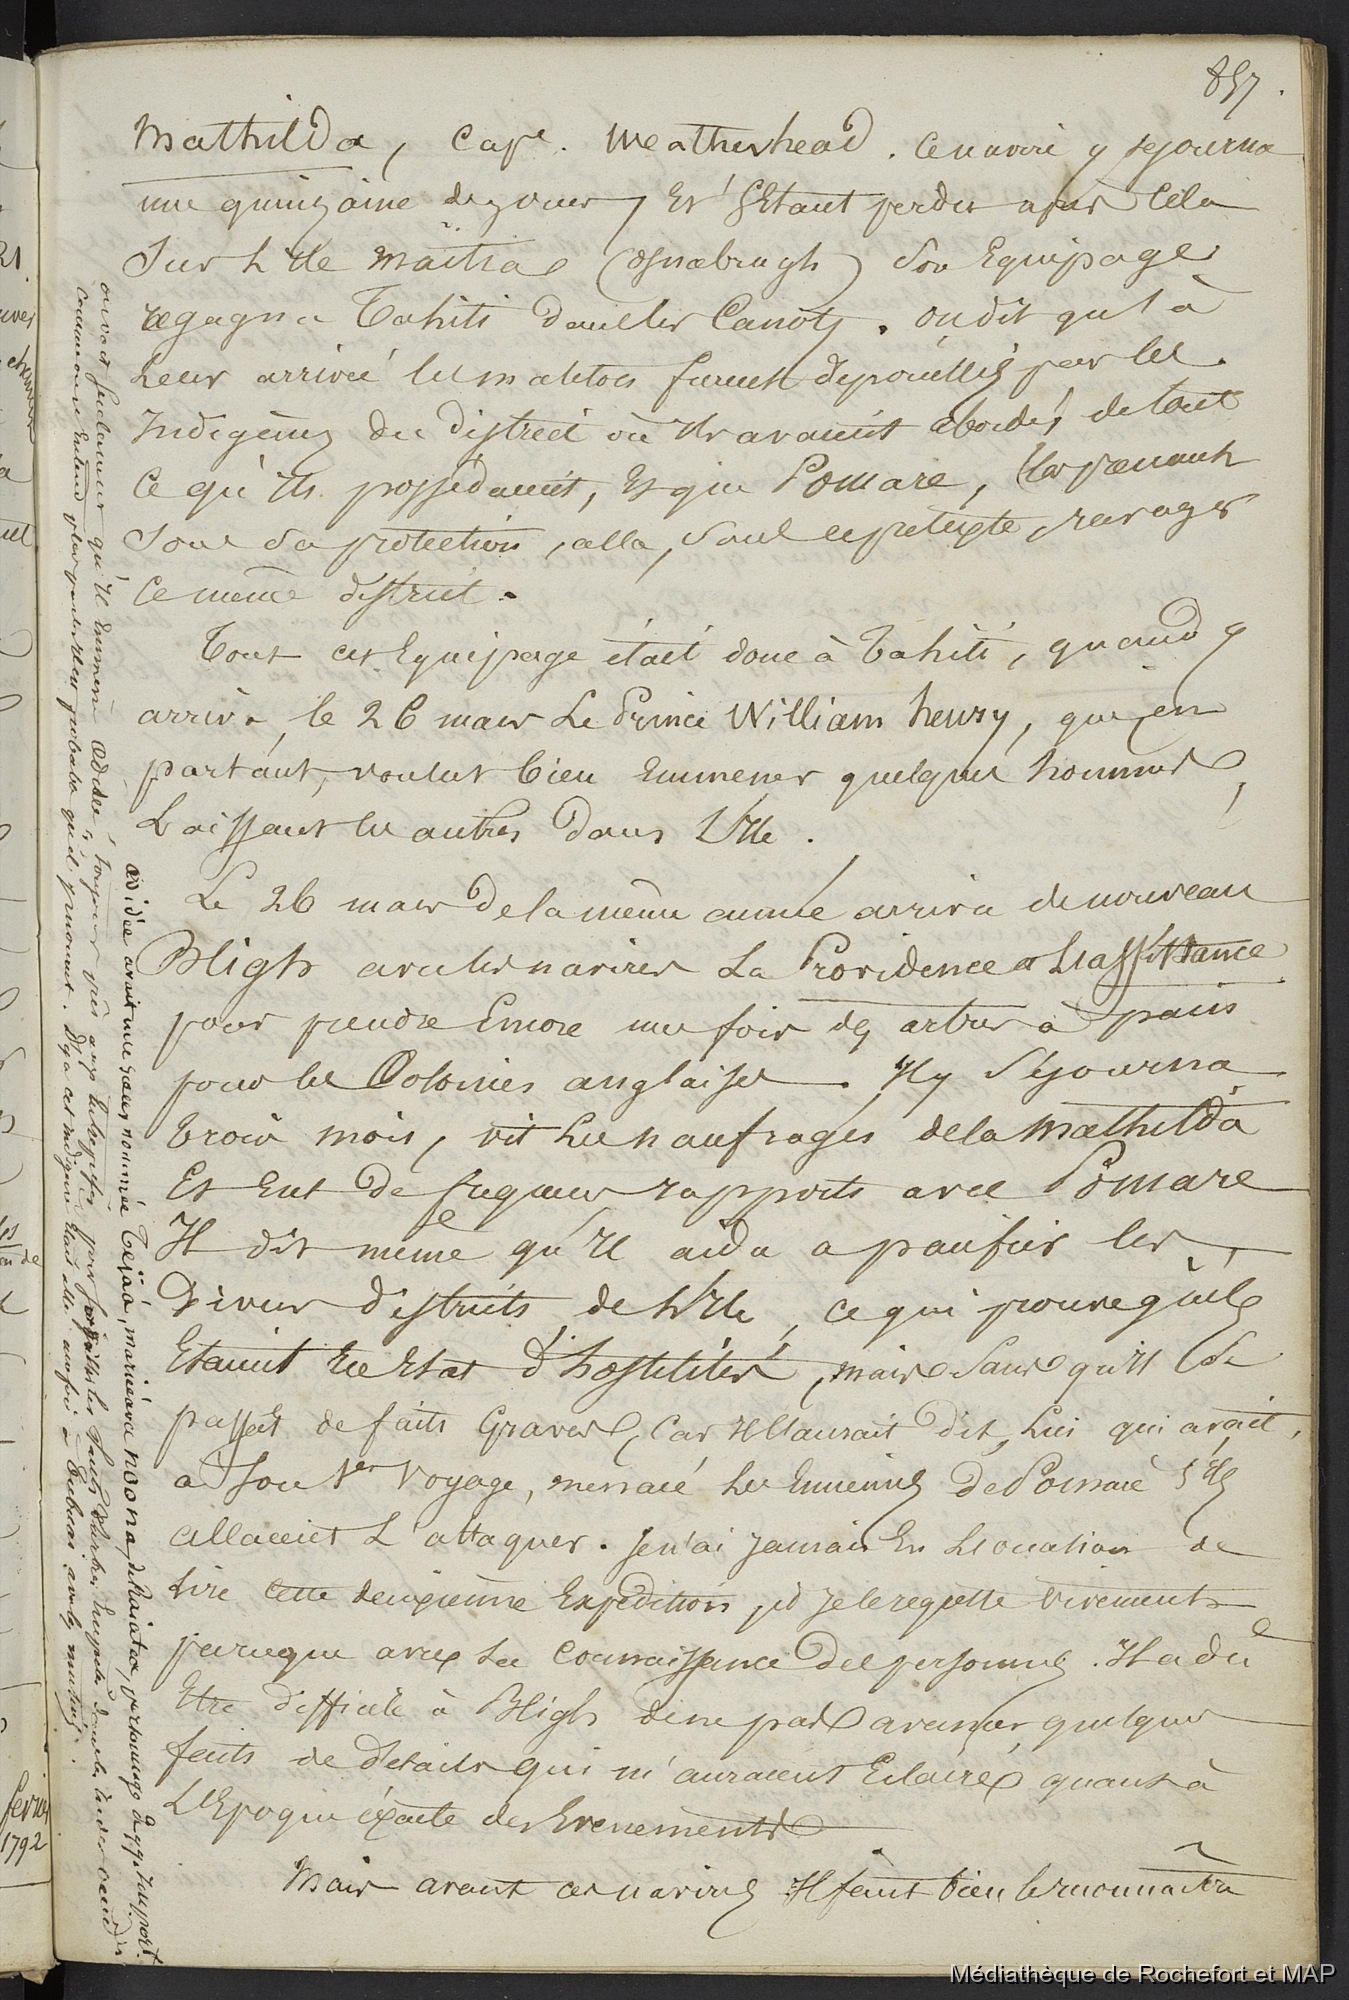 857.
Mathilda, Cape. Weatherhead. Ce navire y séjourna
une quinzaine de jours, Et s'Etant perdu après Cela
Sur L'ile Maïtia (osnabrugh) Son Equipage
regagna Tahiti dans les Canots. on dit qu'à
Leur arrivée les matelots furent dépouillés par les
Indigènes du district où Ils avaient abordés, de tout
Ce qu'ils possédaient, Et que Pomare, les prenant
Sous Sa protection, alla, Sous ce pretexte, ravager
Ce même district.
Tout cet Equipage était donc à Tahiti, quand y
arriva, le 26 mars Le Prince William henry, qui en
partant, voulut bien Emmener quelques hommes,
Laissant les autres dans L'Ile.
Le 26 mars de la même année arriva de nouveau
Bligh avec les navires La Providence et L'assistance
pour prendre Encore une fois des arbres à pain
pour les Colonies anglaises. Il y Séjourna
trois mois, vit Les naufragés de la Mathilda
Et Eut de fréquens rapports avec Pomare
Il dit même qu'Il aida a pacifier les
Divers districts de L'Ile, ce qui prouve qu'ils
Etaient En Etat d'hostilités, mais Sans qu'Il Se
passat de faits Graves, Car Il L'aurait dit, Lui qui avait,
à Son 1er Voyage, menacé les Ennemis de Pomaré s'Ils
allaient L'attaquer. Je n'ai jamais Eu L'occasion de
Lire cette deuxième Expédition, et je le regrette vivement
parceque avec La Connaissance des personnes. Il a dû
Etre difficile à Bligh de ne pas avancer quelques
faits de détails qui m'auraient Eclairé quant à
L'Epoque éxacte des Evenements
Mais avant ces navires Il faut bien le reconnaitre
œdidée avait une sœur nommée Teïaa, mariée à va noona, de Raiatea, personnage de qq. Import.
février
1792
Médiathèque de Rochefort et MAP